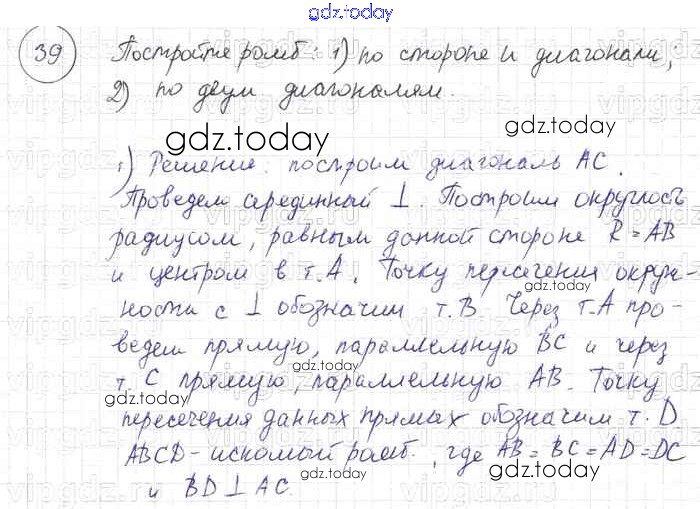 gdz.today
39 Постройте ромб: 1) по стороне и диагонали,
2) по двум диагоналям.
gdz.today
1) Решение: построим диагональ AC.
Проведем серединный ⊥. Построим окружность
радиусом, равным данной стороне R = AB
gdz.today
и центром в т. A. Точку пересечения окруж-
gdz.today
ности с ⊥ обозначим т. B. Через т. A про-
ведем прямую, параллельную BC и через
т. C прямую, параллельную AB. Точку
gdz.today
пересечения данных прямых обозначим т. D.
gdz.today
ABCD - искомый ромб, где AB = BC = AD = DC
gdz.today
и BD ⊥ AC.